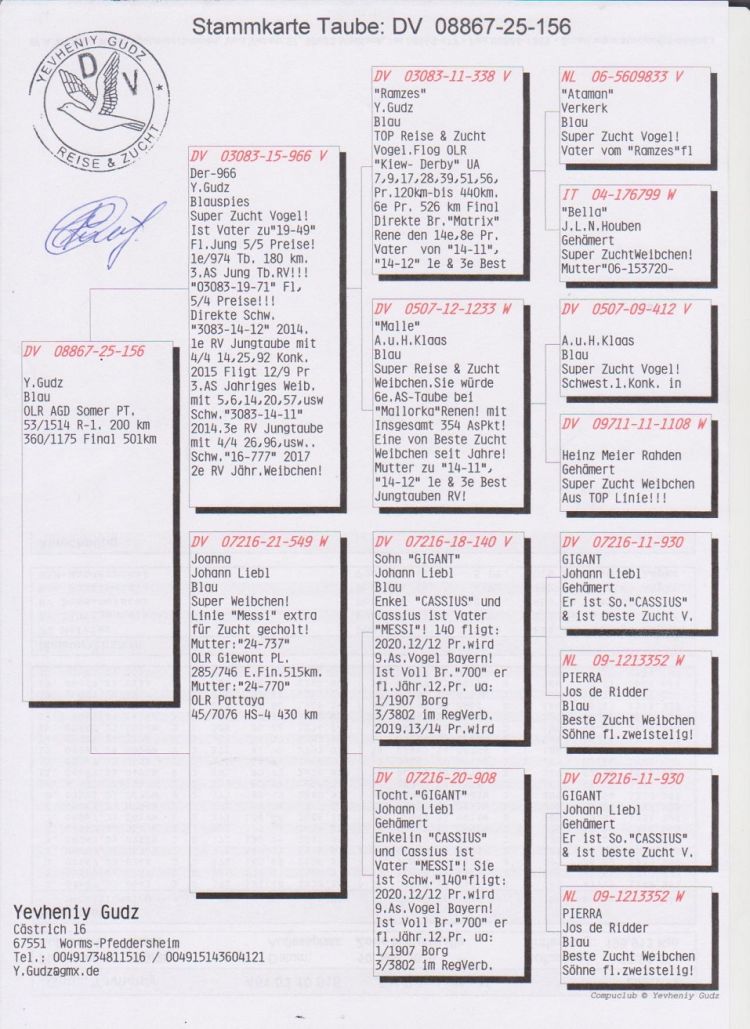 Stammkarte Taube: DV 08867-25-156
YEVHENIY GUDZ
D V
REISE & ZUCHT
*
DV 08867-25-156
Y.Gudz
Blau
OLR AGD Somer PT.
53/1514 R-1. 200 km
360/1175 Final 501km
DV 03083-15-966 V
Der-966
Y.Gudz
Blauspies
Super Zucht Vogel!
Ist Vater zu"19-49"
Fl.Jung 5/5 Preise!
1e/974 Tb. 180 km.
3.AS Jung Tb.RV!!!
"03083-19-71" Fl,
5/4 Preise!!!
Direkte Schw.
"3083-14-12" 2014.
1e RV Jungtaube mit
4/4 14,25,92 Konk.
2015 Fligt 12/9 Pr
3.AS Jahriges Weib.
mit 5,6,14,20,57,usw
Schw."3083-14-11"
2014.3e RV Jungtaube
mit 4/4 26,96,usw..
Schw."16-777" 2017
2e RV Jähr.Weibchen!
DV 07216-21-549 W
Joanna
Johann Liebl
Blau
Super Weibchen!
Linie "Messi" extra
für Zucht gecholt!
Mutter:"24-737"
OLR Giewont PL.
285/746 E.Fin.515km.
Mutter:"24-770"
OLR Pattaya
45/7076 HS-4 430 km
DV 03083-11-338 V
"Ramzes"
Y.Gudz
Blau
TOP Reise & Zucht
Vogel.Flog OLR
"Kiew- Derby" UA
7,9,17,28,39,51,56,
Pr.120km-bis 440km.
6e Pr. 526 km Final
Direkte Br."Matrix"
Rene den 14e,8e Pr.
Vater von "14-11",
"14-12" 1e & 3e Best
DV 0507-12-1233 W
"Malle"
A.u.H.Klaas
Blau
Super Reise & Zucht
Weibchen.Sie würde
6e.AS-Taube bei
"Mallorka"Renen! mit
Insgesamt 354 AsPkt!
Eine von Beste Zucht
Weibchen seit Jahre!
Mutter zu "14-11",
"14-12" 1e & 3e Best
Jungtauben RV!
DV 07216-18-140 V
Sohn "GIGANT"
Johann Liebl
Blau
Enkel "CASSIUS" und
Cassius ist Vater
"MESSI"! 140 fligt:
2020.12/12 Pr.wird
9.As.Vogel Bayern!
Ist Voll Br."700" er
fl.Jähr.12.Pr. ua:
1/1907 Borg
3/3802 im RegVerb.
2019.13/14 Pr.wird
DV 07216-20-908
Tocht."GIGANT"
Johann Liebl
Gehämert
Enkelin "CASSIUS"
und Cassius ist
Vater "MESSI"! Sie
ist Schw."140"fligt:
2020.12/12 Pr.wird
9.As.Vogel Bayern!
Ist Voll Br."700" er
fl.Jähr.12.Pr. ua:
1/1907 Borg
3/3802 im RegVerb.
NL 06-5609833 V
"Ataman"
Verkerk
Blau
Super Zucht Vogel!
Vater vom "Ramzes"fl
IT 04-176799 W
"Bella"
J.L.N.Houben
Gehämert
Super ZuchtWeibchen!
Mutter"06-153720-
DV 0507-09-412 V
A.u.H.Klaas
Blau
Super Zucht Vogel!
Schwest.1.Konk. in
DV 09711-11-1108 W
Heinz Meier Rahden
Gehämert
Super Zucht Weibchen
Aus TOP Linie!!!
DV 07216-11-930
GIGANT
Johann Liebl
Gehämert
Er ist So."CASSIUS"
& ist beste Zucht V.
NL 09-1213352 W
PIERRA
Jos de Ridder
Blau
Beste Zucht Weibchen
Söhne fl.zweistelig!
DV 07216-11-930
GIGANT
Johann Liebl
Gehämert
Er ist So."CASSIUS"
& ist beste Zucht V.
NL 09-1213352 W
PIERRA
Jos de Ridder
Blau
Beste Zucht Weibchen
Söhne fl.zweistelig!
Yevheniy Gudz
Cästrich 16
67551 Worms-Pfeddersheim
Tel.: 00491734811516 / 004915143604121
Y.Gudz@gmx.de
Compuclub © Yevheniy Gudz